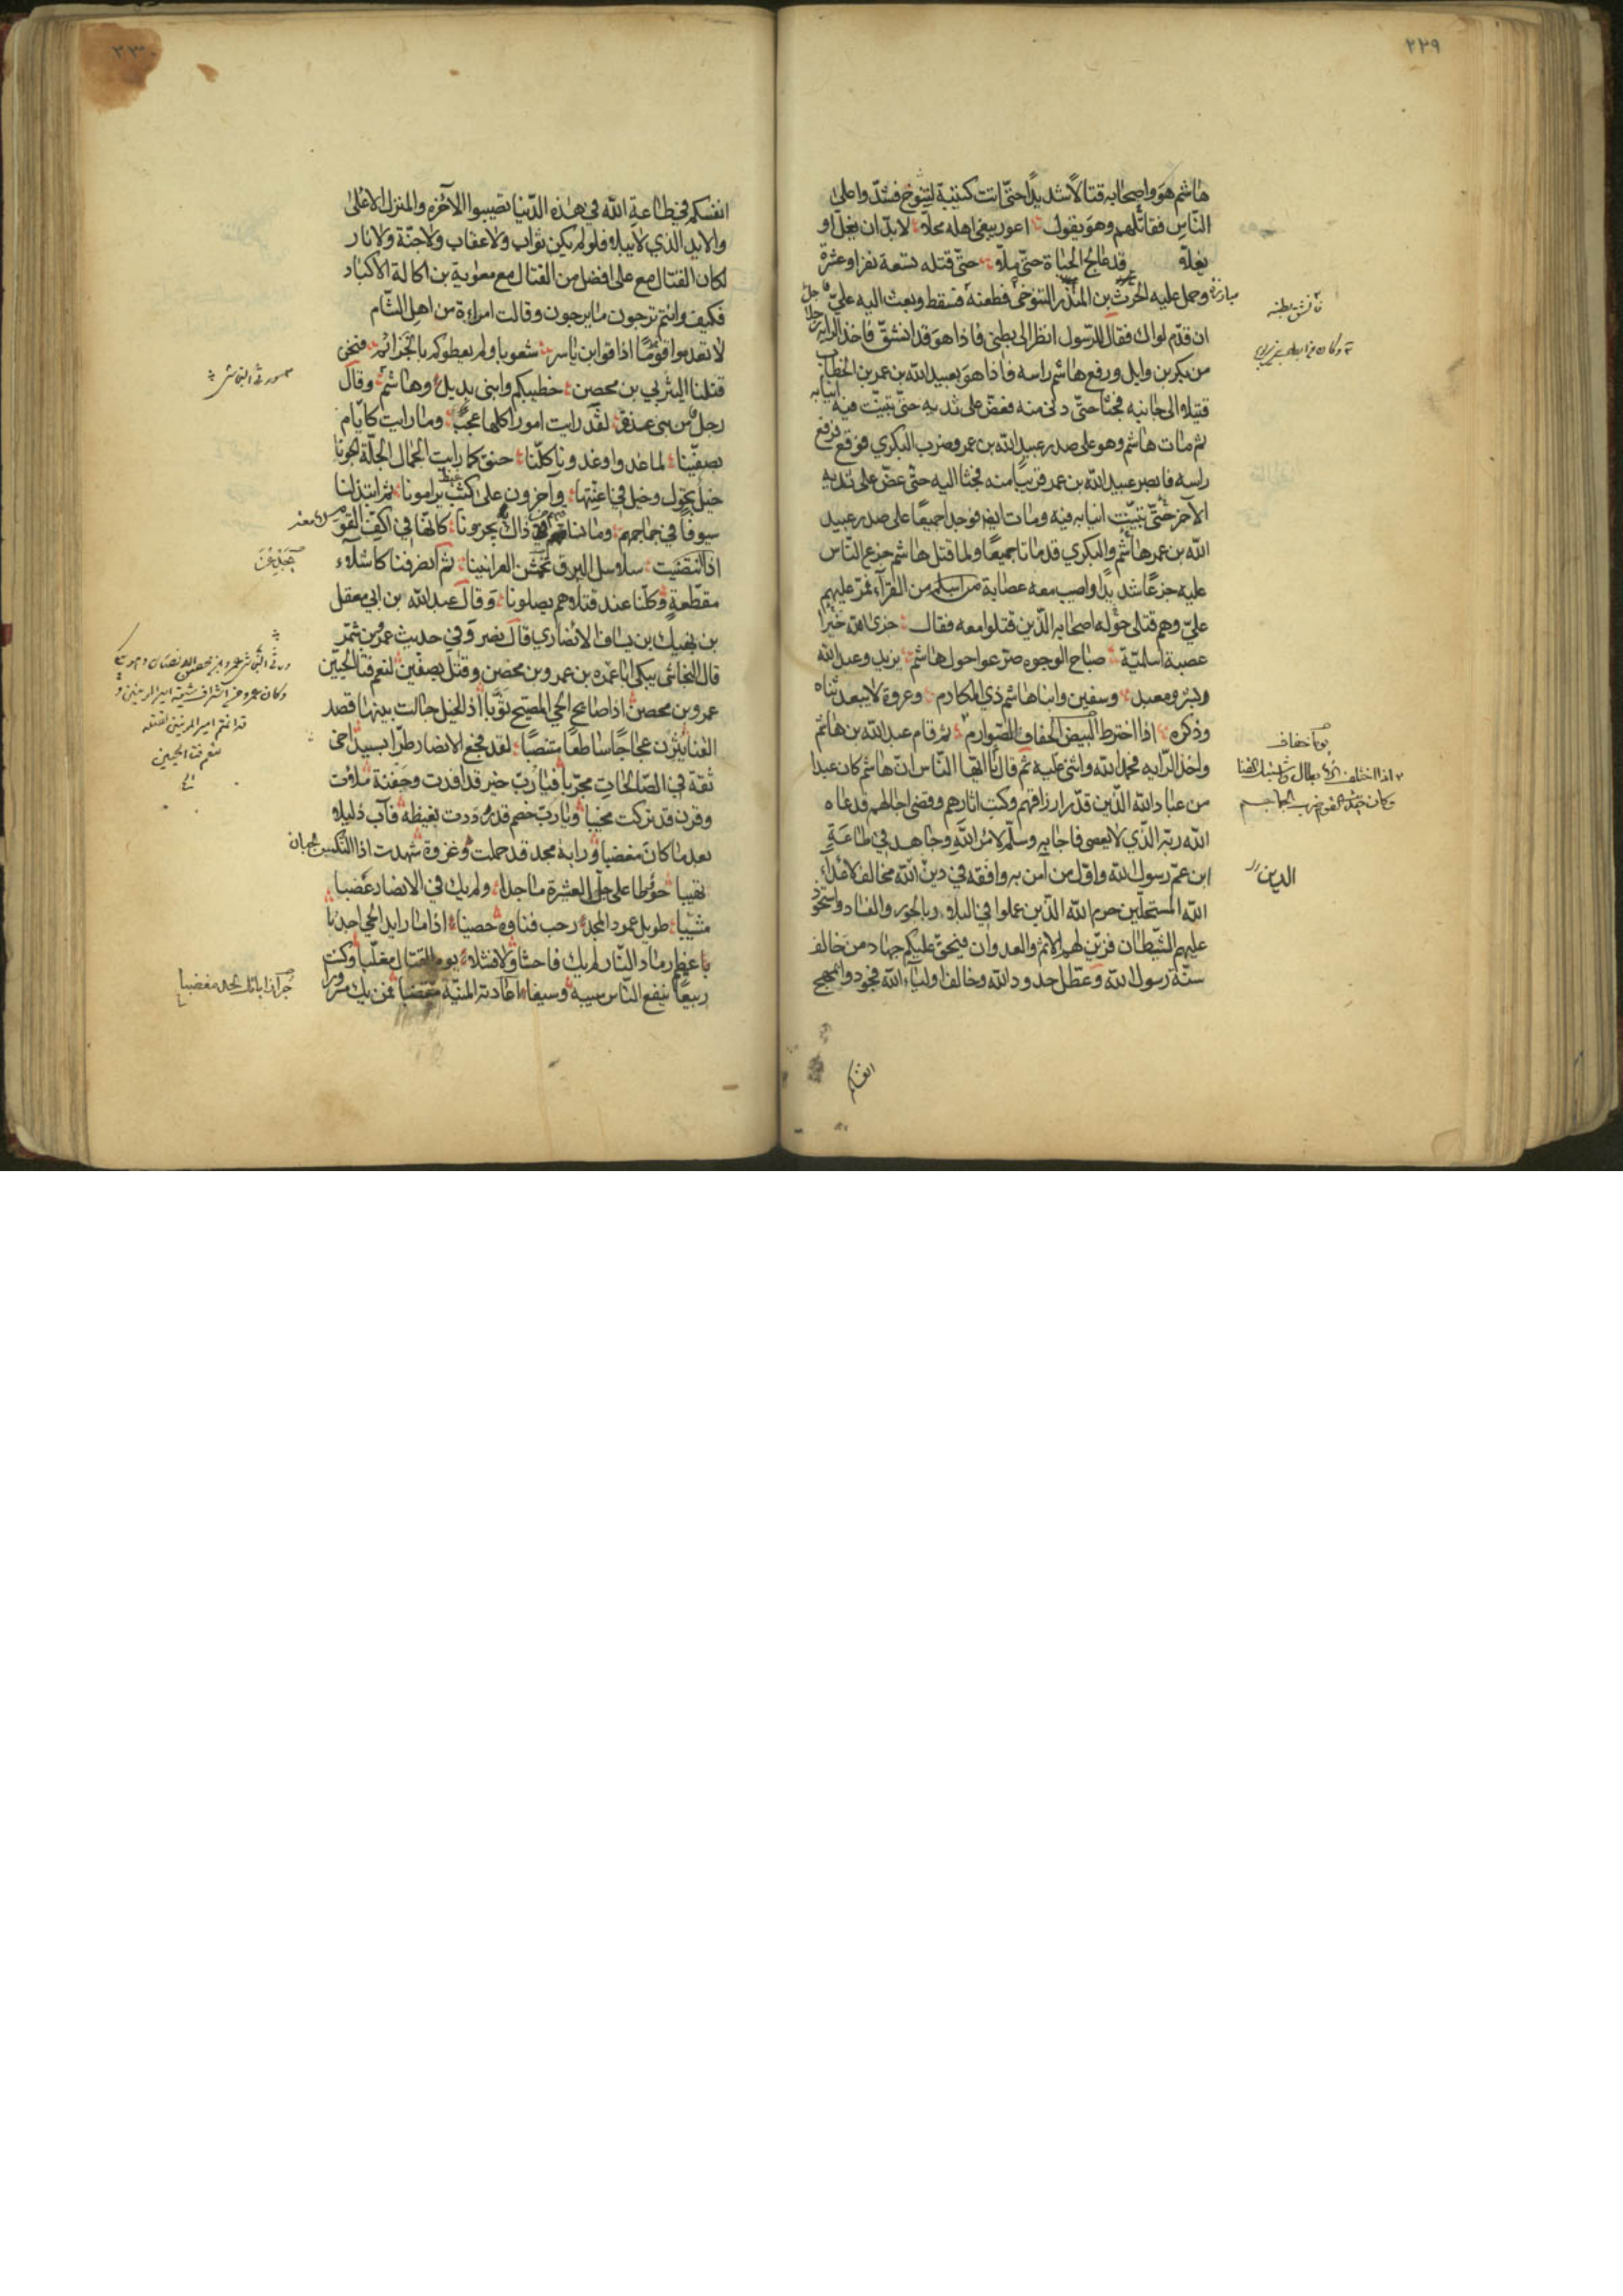 ٢٢٩
هاشم هو واصحابه قتالا شديدا حتّى اتت كتيبة لتنوخ فشدّوا على
النّاس فقاتلهم وهو يقول اعور يبغي اهله محلّا لا بدّ ان يغلّ او
يغلّا قد عالج الحياة حتّى ملّا حتّى قتله تسعة نفر او عشرة
وحمل عليه الحرث بن المنذر التنوخي فطعنه فسقط وبعث اليه عليّ
ان قدّم لواك فقال للرّسول انظر الى بطني فاذا هو قد انشقّ فاخذ الرايه
من بكر بن وايل ورفع هاشم راسه فاذا هو بعبيد الله بن عمر بن الخطاب
قتيلا الى جانبه فجثا حتّى دنى منه فعضّ على ثديه حتّى تبيّنت فيه انيابه
ثم مات هاشم وهو على صدر عبيد الله بن عمر وضرب البكري فوقع فرفع
راسه فابصر عبيد الله بن عمر قريبا منه فجثا اليه حتّى عضّ على ثديه
الآخر حتّى تبيّنت انيابه فيه ومات ايضا فوجدا جميعا على صدر عبيد
الله بن عمر هاشم والبكري قد ماتا جميعا ولما قتل هاشم جزع النّاس
عليه جزعا شديدا واصيب معه عصابة من اسلم من القرآء فمرّ عليهم
عليّ وهم قتلى حوله اصحابه الّذين قتلوا معه فقال جزى الله خيرا
عصبة اسلميّة صباح الوجوه صرّعوا حول هاشم يزيد وعبد الله
وبشر ومعبد وسفين وابنا هاشم ذي المكارم وعروة لا يبعد ثناه
وذكره اذا اخترط البيض الخفاف الصّوارم ثم قام عبد الله بن هاشم
واخذ الرّايه فحمد الله واثنى عليه ثم قال يا ايّها النّاس انّ هاشم كان عبدا
من عباد الله الّذين قدّر ارزاقهم وكتب اثارهم وقضى اجالهم فدعاه
الله ربّه الّذي لا يعصى فاجابه وسلّم لامر الله وجاهد في طاعة
ابن عمّ رسول الله واوّل من آمن به وافقه في دين الله مخالف لاعداء
الله المستحلّين حرم الله الّذين عملوا في البلاد بالجور والفساد واستحوذ
عليهم الشّيطان فزيّن لهم الاثم والعدوان فيحقّ عليكم جهاد من خالف
سنّة رسول الله وعطّل حدود الله وخالف اولياء الله فجودوا بمهج
انفسكم
مبارزة
فانشق بطنه
يوما خفاف
الدين
انفسكم في طاعة الله في هذه الدّنيا تصيبوا الآخره والمنزل الاعلى
والابد الذي لا يبلا فلو لم يكن ثواب ولا عقاب ولا جنّة ولا نار
لكان القتال مع علي افضل من القتال مع معوية بن اكالة الاكباد
فكيف وانتم ترجون ما يرجون وقالت امراءة من اهل الشّام
لا تعدموا قوما اذاقوا ابن ياسر شعوبا ولم يعطوكم بالخزائم فنحن
قتلنا اليثربي بن محصن خطيبكم وابني بديل وهاشم وقال
رجل من بني عذرة لقد رايت امورا كلها عجب وما رايت كايّام
بصفّينا لما غدوا وغدونا كلّنا حنق كما رايت الجمال الجلّة الجونا
خيل تجول وخيل في اعنّتها وآخرون على غيظ يرامونا ثم ابتذلنا
سيوفا في جماجمهم وما نساقيهم من ذاك يجزونا كانّها في اكفّ القوم
اذا انتضيت سلاسل البرق تجدعن العرانينا ثم انصرفنا كاشلاء
مقطّعة وكلّنا عند قتلاهم يصلونا وقال عبد الله بن ابي معقل
بن نهيك بن يساف الانصاري قال نصر وفي حديث عمر بن شمر
قال النجاشي يبكي ابا عمره بن عمرو بن محصن وقتل بصفين لنعم فتى الحيّين
عمرو بن محصن اذا صائح الحي المصبّح ثوّبا اذا الخيل جالت بينها قصد
القنا يثرن عجاجا ساطعا متنصّبا لقد فجع الانصار طرّا بسيّد اخي
ثقة في الصّالحات مجرّبا فيا ربّ خير قد افدت وجفنة ملاءت
وقرن قد تركت مخيبا ويا ربّ خصم قد رددت بغيظه فآب ذليلا
بعد ما كان مغضبا وراية مجد قد حملت وغزوة شهدت اذا النّكس الجبان
تهيبا حووطا على جلّ العشيرة ماجدا ولم يك في الانصار غضبا
مشيبا طويل عمود المجد رحب فناوه خصيبا اذا ما رايد الحي اجدبا
عظيم رماد النّار لم يك فاحشا ولا فشلا يوم القتال مغلّبا وكنت
ربيعا ينفع النّاس سيبه وسيفا
لنعم فتى الحيين